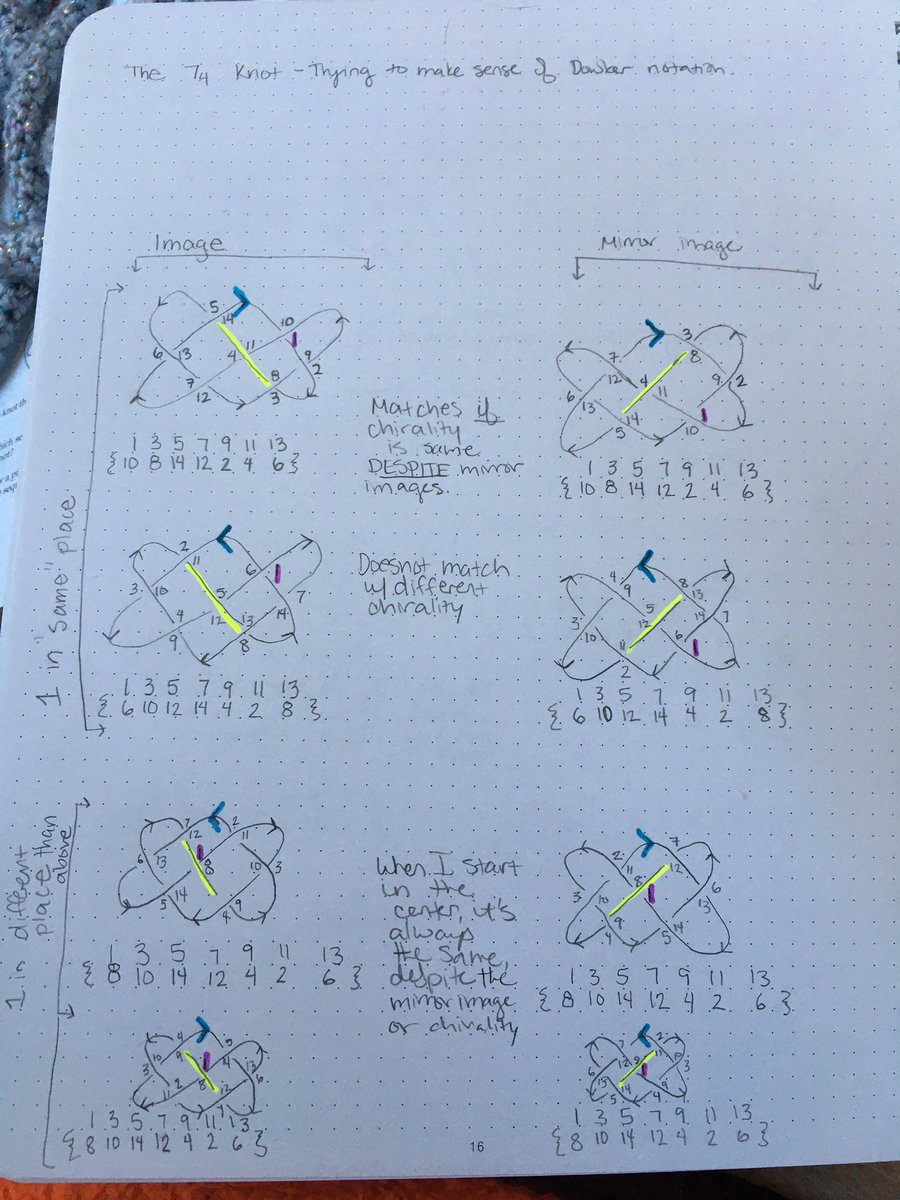 The 7₄ Knot - Trying to make sense of Dowker notation.
Image
Mirror image
1 in "same" place
5
14
10
1
6
13
4
11
9
2
7
12
8
3
1 3 5 7 9 11 13
{10 8 14 12 2 4 6}
Matches if
chirality
is same
DESPITE mirror
images.
3
8
7
12
4
11
9
2
6
13
14
5
10
1
1 3 5 7 9 11 13
{10 8 14 12 2 4 6}
2
11
6
1
3
10
5
12
7
14
4
9
13
8
1 3 5 7 9 11 13
{6 10 12 14 4 2 8}
Does not match
w/ different
chirality
4
9
8
13
5
12
14
7
3
10
11
2
6
1
1 3 5 7 9 11 13
{6 10 12 14 4 2 8}
1 in different
place than
above
7
12
2
11
6
13
1
8
10
3
5
14
4
9
1 3 5 7 9 11 13
{8 10 14 12 4 2 6}
When I start
in the
center, it's
always
the same,
despite the
mirror image
or chirality
2
11
7
12
8
1
3
10
6
13
9
4
5
14
1 3 5 7 9 11 13
{8 10 14 12 4 2 6}
1 3 5 7 9 11 13
{8 10 14 12 4 2 6}
1 3 5 7 9 11 13
{8 10 14 12 4 2 6}
16